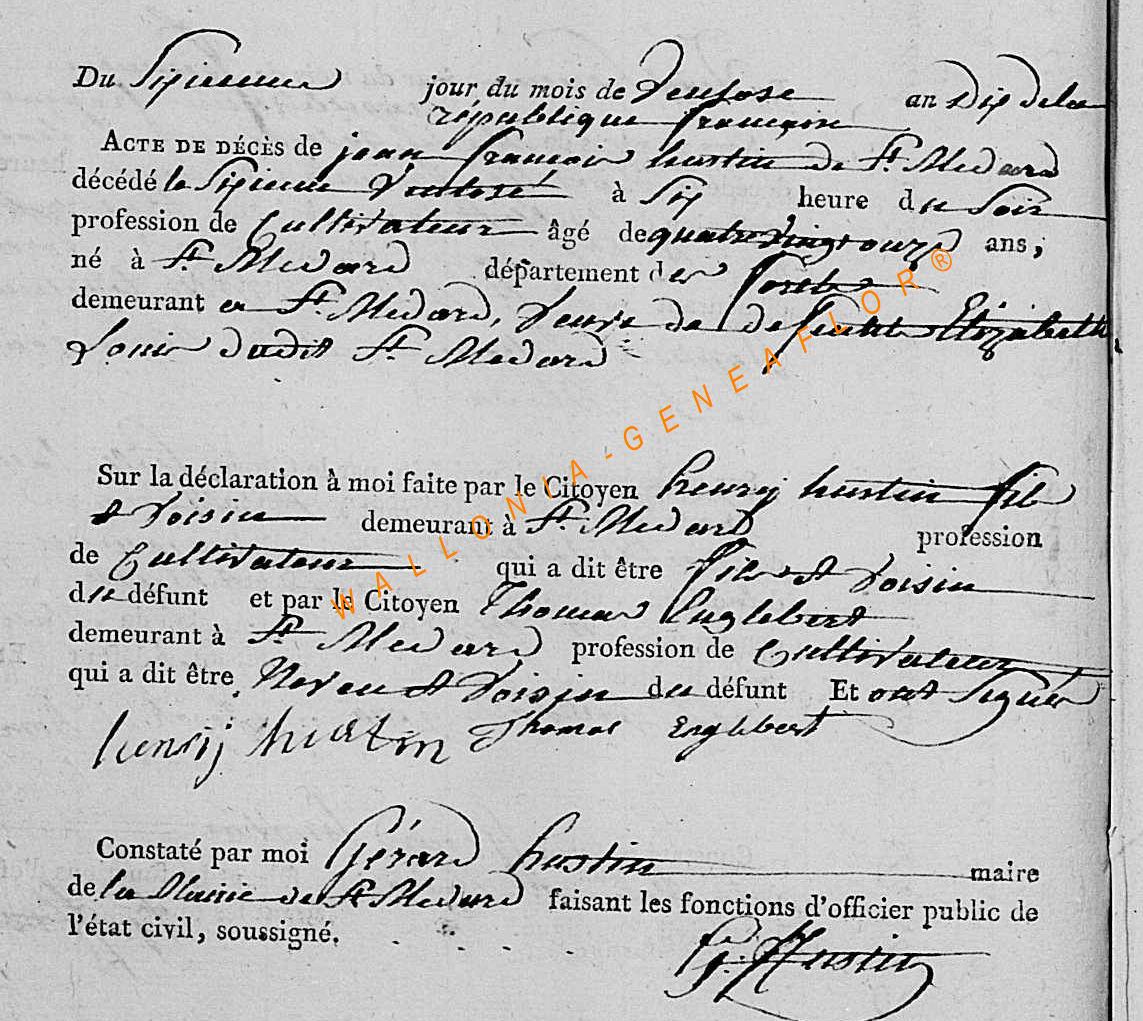 Du Sixieme jour du mois de Ventose an Dix de la
république françoise
ACTE DE DÉCÈS de jean françois hustin de St. Medard
décédé le Sixieme Ventose à Six heure du Soir
profession de Cultivateur âgé de quatre vingt onze ans,
né à St. Medard département des forêts
demeurant a St. Medard, Veuve de defunte Elizabeth
Louis dudit St. Medard
Sur la déclaration à moi faite par le Citoyen henry hustin fils
et Voisin demeurant à St. Medard profession
de Cultivateur qui a dit être fils et Voisin
du défunt et par le Citoyen Thomas Englebert
demeurant à St. Medard profession de Cultivateur
qui a dit être Neveu et Voisin du défunt Et ont Signés
henrij hustin Thomas Englebert
Constaté par moi Gérard hustin maire
de la Mairie de St. Medard faisant les fonctions d'officier public de
l'état civil, soussigné.
G. Hustin
WALLONIA-GENEAFLOR®